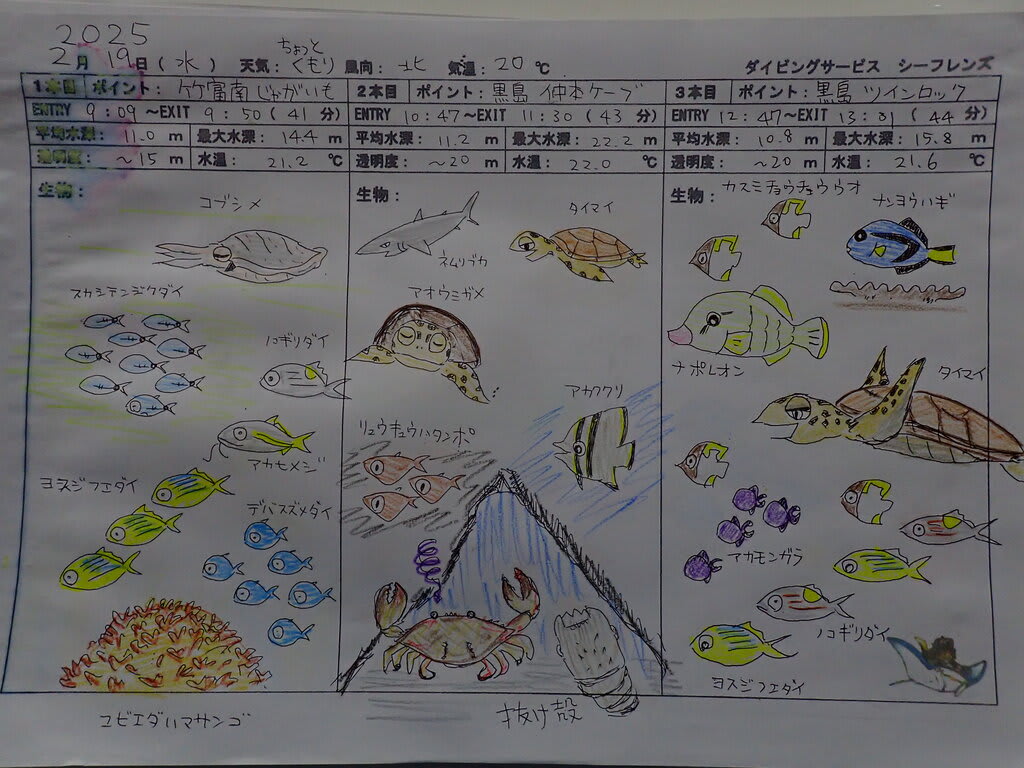 2025
2月19日(水) 天気:ちょっとくもり 風向:北 気温:20℃ ダイビングサービス シーフレンズ
1本目 ポイント:竹富南じゃがいも 2本目 ポイント:黒島 仲本ケーブ 3本目 ポイント:黒島 ツインロック
ENTRY 9:09~EXIT 9:50(41分) ENTRY 10:47~EXIT 11:30(43分) ENTRY 12:47~EXIT 13:01(44分)
平均水深: 11.0 m 最大水深: 14.4 m 平均水深: 11.2 m 最大水深: 22.2 m 平均水深: 10.8 m 最大水深: 15.8 m
透明度: ~15 m 水温: 21.2 ℃ 透明度: ~20 m 水温: 22.0 ℃ 透明度: ~20 m 水温: 21.6 ℃
生物:
コブシメ
スカシテンジクダイ
ノコギリダイ
アカヒメジ
ヨスジフエダイ
デバスズメダイ
ユビエダハマサンゴ
生物:
ネムリブカ
タイマイ
アオウミガメ
アカククリ
リュウキュウハタンポ
抜け殻
生物:
カスミチョウチョウウオ
ナンヨウハギ
ナポレオン
タイマイ
アカモンガラ
ノコギリダイ
ヨスジフエダイ